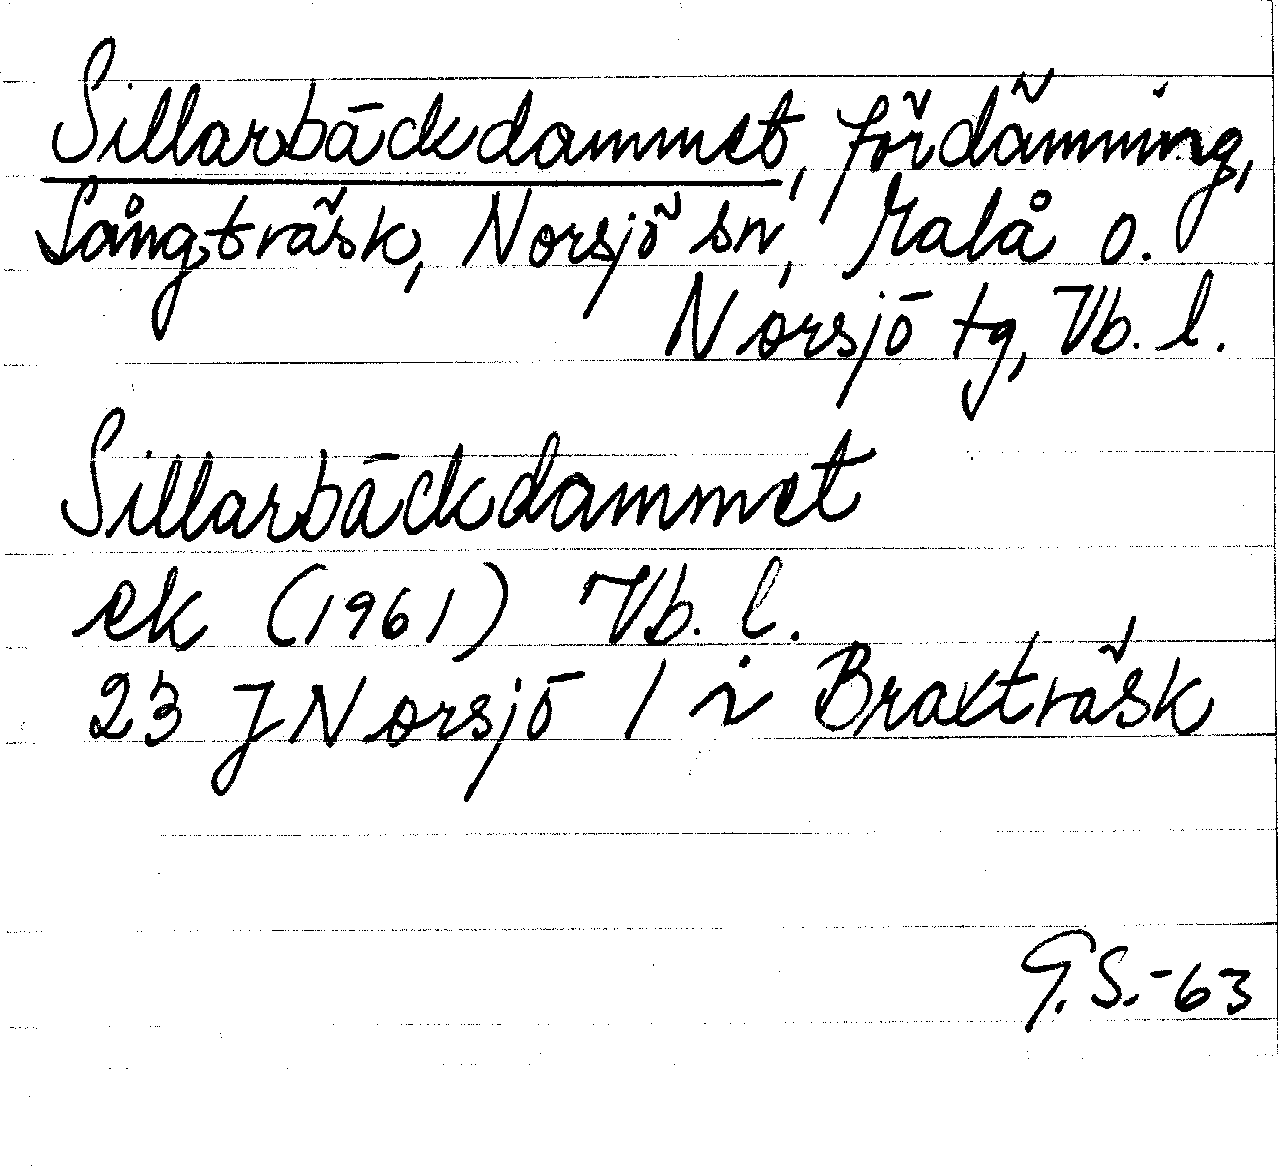 Sillarbäckdammet, fördämning,
Långträsk, Norsjö sn, Malå o.
Norsjö tg, Vb. l.
Sillarbäckdammet
ek (1961) Vb. l.
23 J Norsjö 1 i Braxträsk
G.S.-63